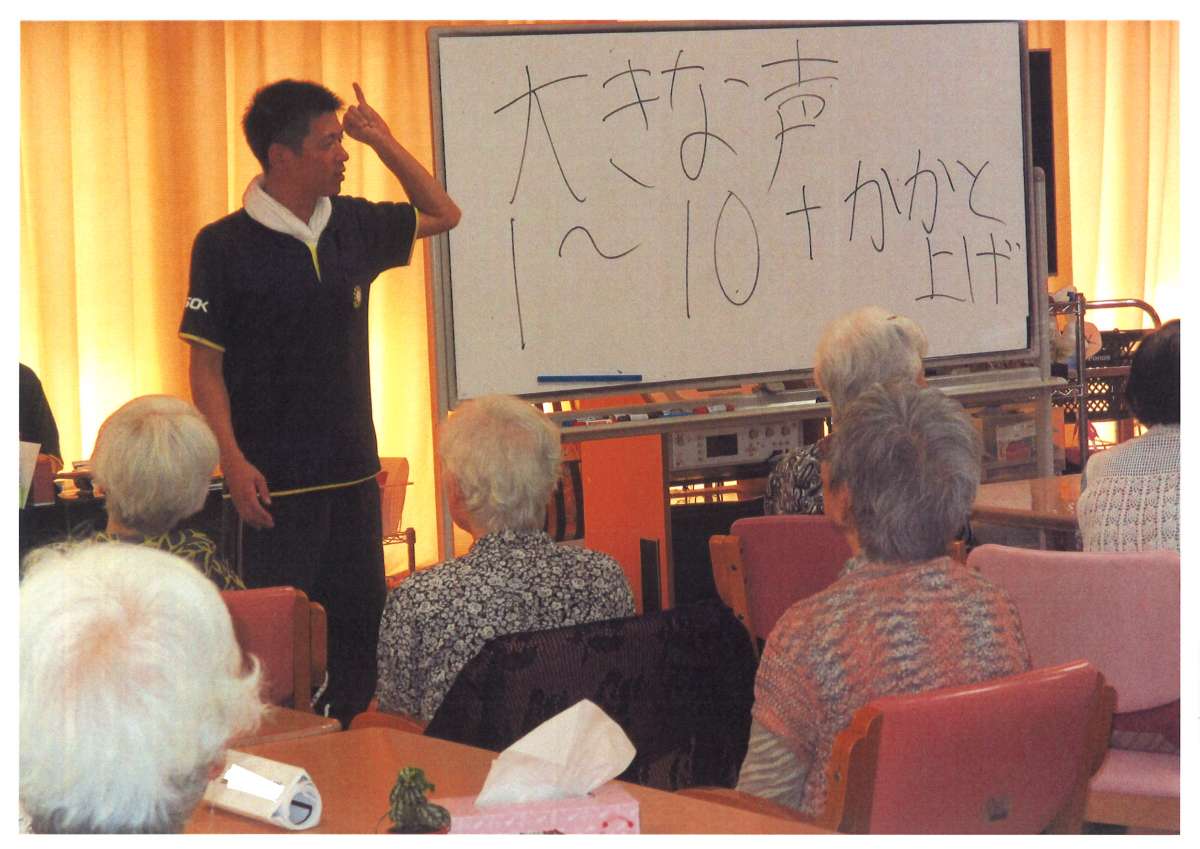 大きな声
1～10+かかと
上げ